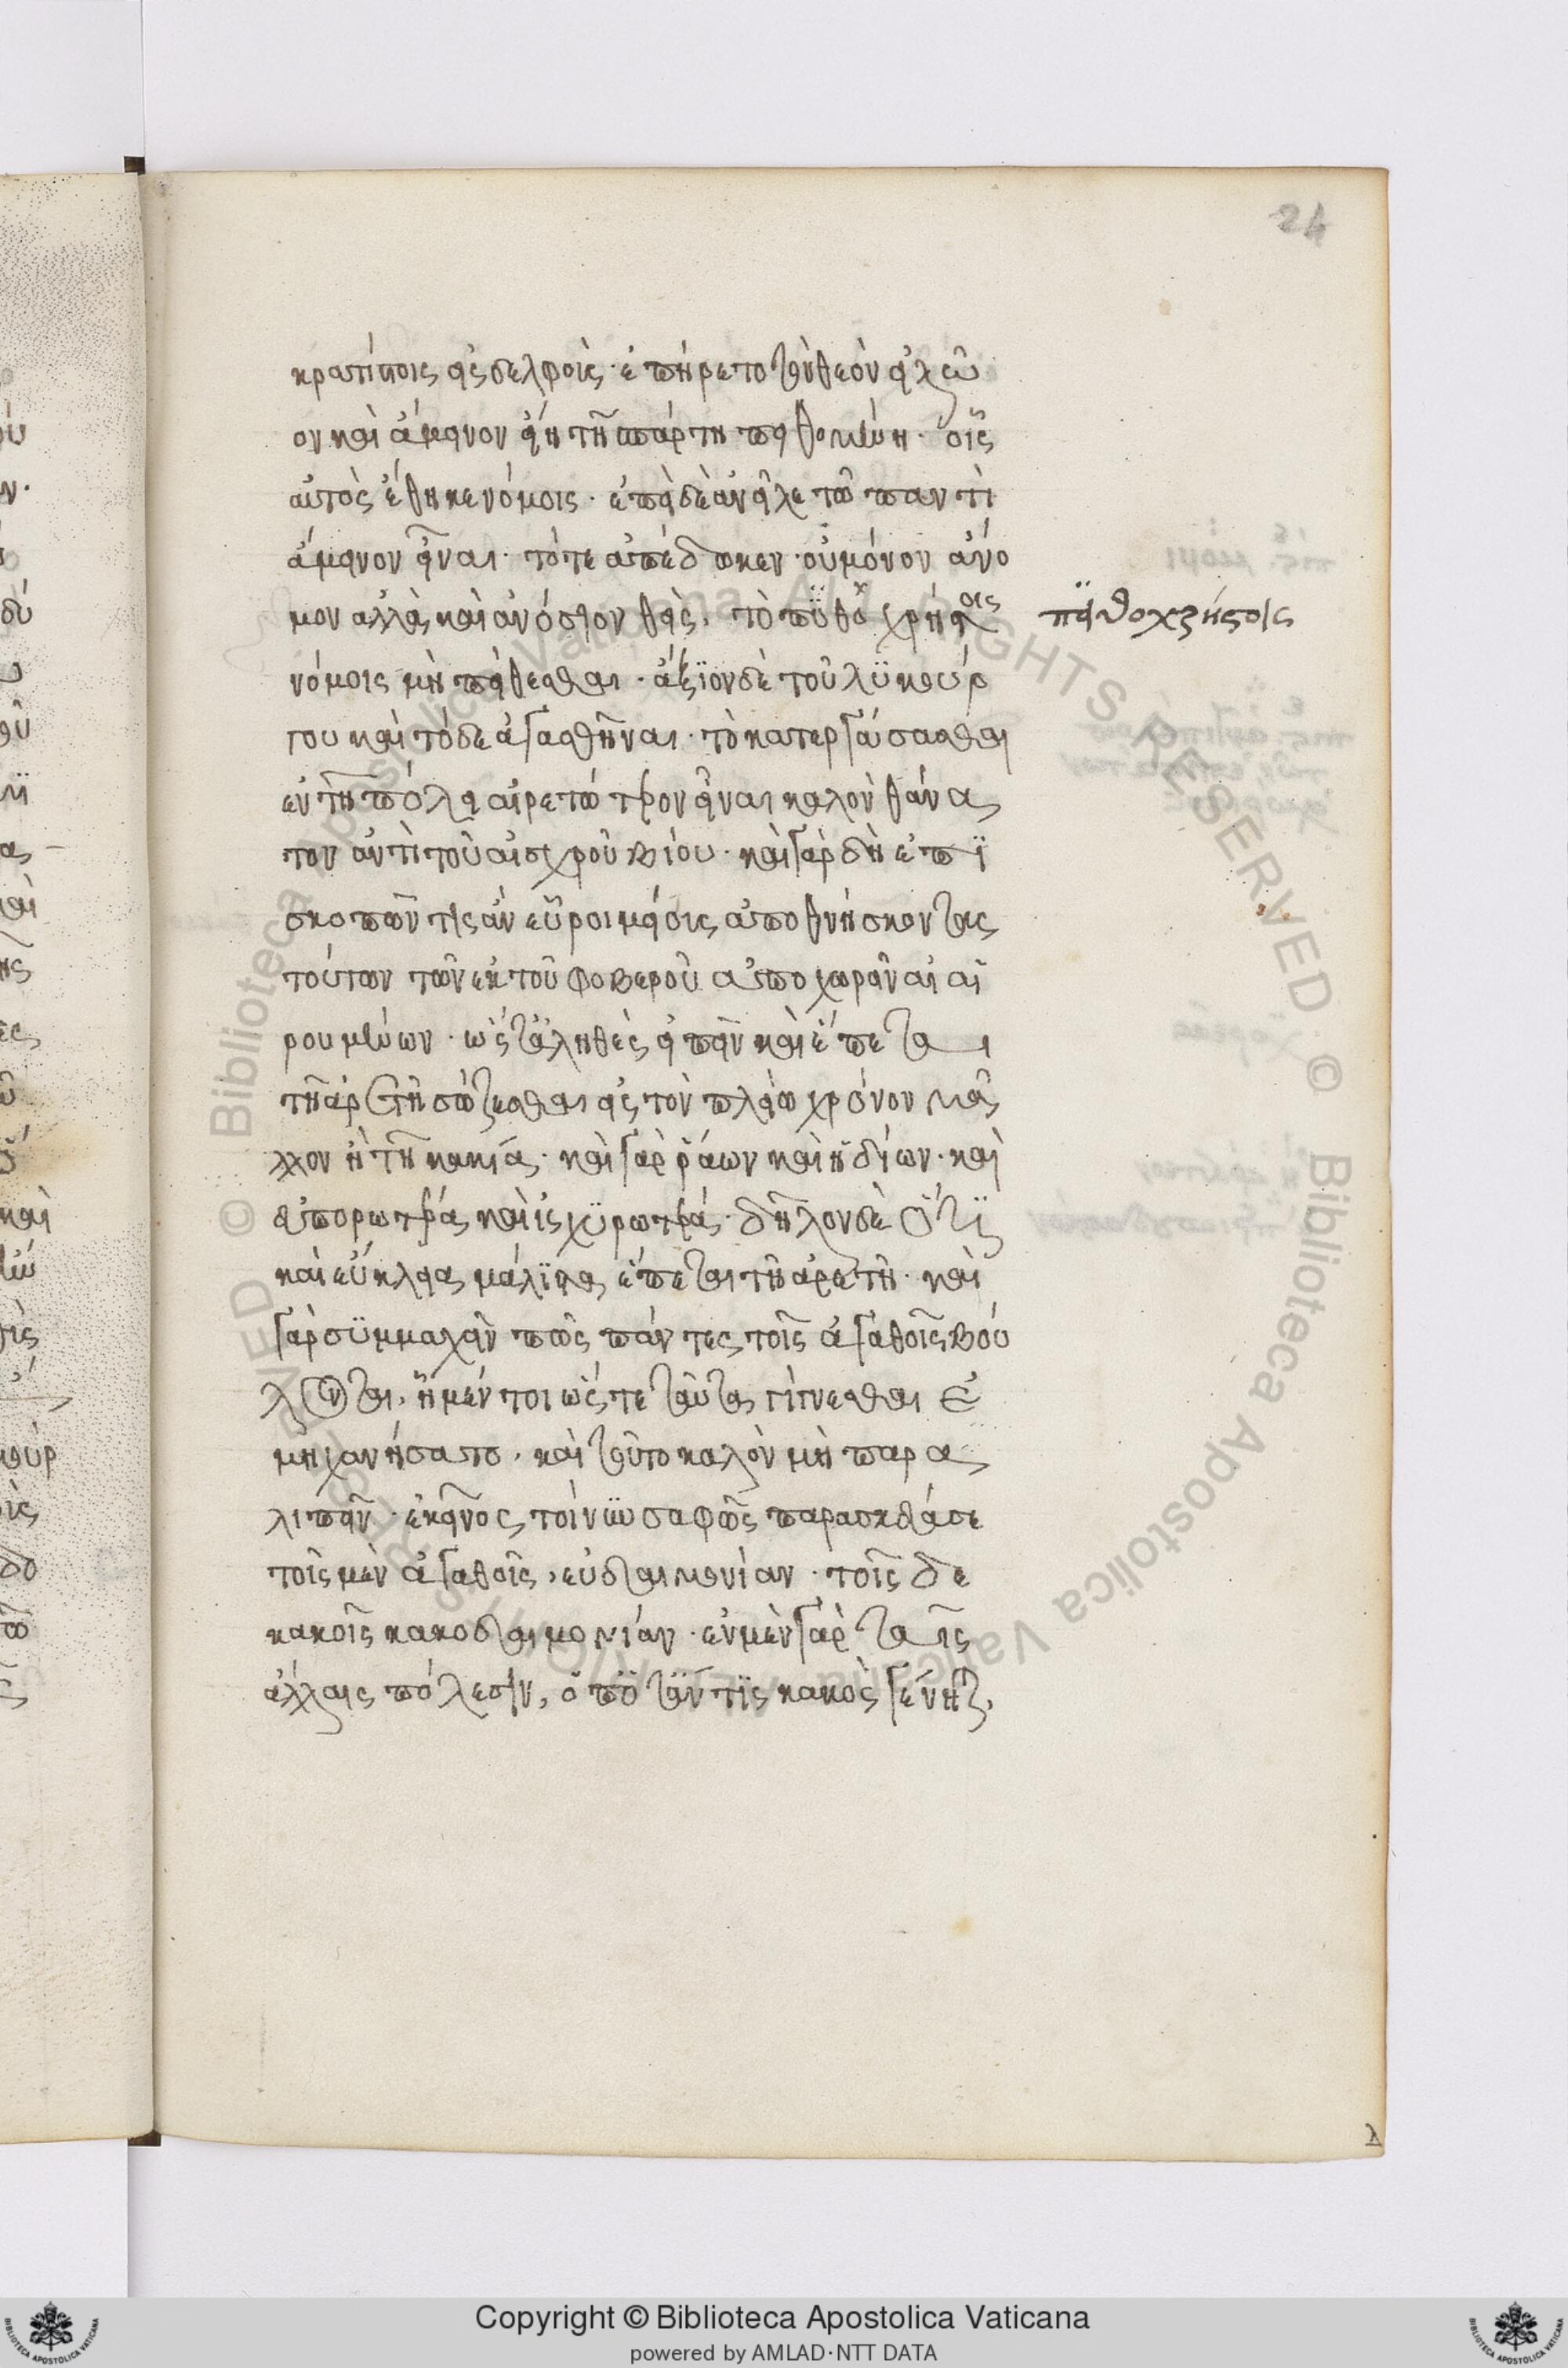 24
κρατίστοις εἰς δελφοὺς· ἐπήρετο τὸν θεὸν εἰ λῶ
ον καὶ ἄμεινον εἴη τῆ σπάρτη πειθομένη· οἷς
αὐτὸς ἔθηκε νόμοις· ἐπεὶ δὲ ἀνεῖλε τῶ παντὶ
ἄμεινον εἶναι· τότε ἀπέδωκεν· οὐ μόνον ἄνο
μον ἀλλὰ καὶ ἀνόσιον θεὶς, τὸ πυθοχρήστοις
πϋθοχρήστοις
νόμοις μὴ πείθεσθαι· ἄξϊον δὲ τοῦ λϋκούρ
γου καὶ τόδε ἀγασθῆναι· τὸ κατεργάσασθαι
ἐν τῆ πόλει αἱρετώτερον εἶναι καλὸν θάνα
τον ἀντὶ τοῦ αἰσχροῦ βίου· καὶ γὰρ δὴ ἐπϊ
σκοπῶν τὶς ἂν εὕροι μείους ἀποθνήσκοντας
τούτων τῶν ἐκ τοῦ φοβεροῦ ἀποχωρεῖν αἱ αἱ
ρουμένων· ὡς τἀληθὲς εἰπεῖν καὶ ἕπεται
τῆ ἀρετῆ σώζεσθαι εἰς τὸν πλείω χρόνον μᾶ
λλον ἢ τῆ κακία· καὶ γὰρ ῥάων καὶ ἡδίων· καὶ
εὐπορωτέρα καὶ ἰσχϋρωτέρα· δῆλον δὲ ὅτϊ
καὶ εὔκλεια μάλϊστα ἕπεται τῆ ἀρετῆ· καὶ
γὰρ σϋμμαχεῖν πως πάντες τοῖς ἀγαθοῖς βού
λονται, ἧ μέν τοι ὥστε ταῦτα γίγνεσθαι ἐ
μηχανήσατο, καὶ τοῦτο καλὸν μὴ παρα
λιπεῖν· ἐκεῖνος τοίνϋν σαφῶς παρασκεύασε
τοῖς μὲν ἀγαθοῖς, εὐδαιμονίαν· τοῖς δὲ
κακοῖς κακοδαιμονίαν· ἐν μὲν γὰρ ταῖς
ἄλλαις πόλεσϊν, ὁπόταν τϊς κακὸς γένηται,
Copyright © Biblioteca Apostolica Vaticana
powered by AMLAD·NTT DATA